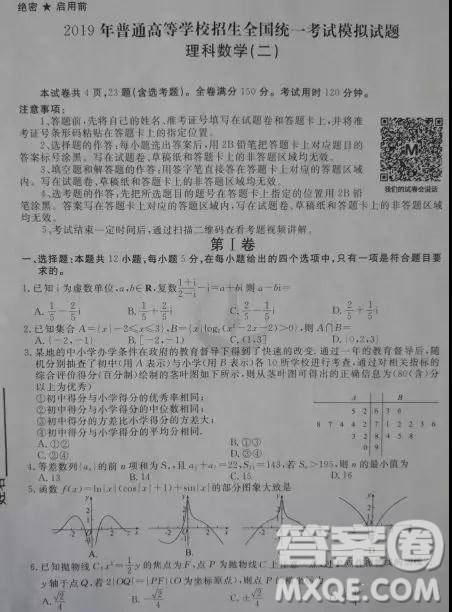 绝密★启用前
2019年普通高等学校招生全国统一考试模拟试题
理科数学(二)
本试卷共4页,23题(含选考题)。全卷满分150分。考试用时120分钟。
注意事项:
1、答题前,先将自己的姓名、准考证号填写在试题卷和答题卡上,并将准
考证号条形码粘贴在答题卡上的指定位置。
2、选择题的作答:每小题选出答案后,用2B铅笔把答题卡上对应题目的
答案标号涂黑。写在试题卷、草稿纸和答题卡上的非答题区域均无效。
3、填空题和解答题的作答:用签字笔直接答在答题卡上对应的答题区域
内。写在试题卷、草稿纸和答题卡上的非答题区域均无效。
4、选考题的作答:先把所选题目的题号在答题卡上指定的位置用2B铅
笔涂黑。答案写在答题卡上对应的答题区域内,写在试题卷、草稿纸和答题卡
上的非答题区域均无效。
5、考试结束一定时间后,通过扫描二维码查看考题视频讲解。
M
我们的试卷会说话
第Ⅰ卷
一、选择题:本题共12小题,每小题5分,在每小题给出的四个选项中,只有一项是符合题目要
求的。
1.已知i为虚数单位,a,b∈R,复数(1+i)/(2-i)-i=a+bi,则a-bi=
A.1/5-2/5 i B.1/5+2/5 i C.2/5-1/5 i D.2/5+1/5 i
2.已知集合A={x|-2≤x≤3},B={x|log₂(x²-2x-2)>0},则A∩B=
A.(-2,-1) B.[-2,-1) C.(1,3] D.
3.某地的中小学办学条件在政府的教育督导下得到了快速的改变.通过一年的教育督导后,随
机分别抽查了初中(用A表示)与小学(用B表示)各10所学校进行考查,通过对相关指标的
综合评价得分(百分制)绘制的茎叶图如下所示,则从茎叶图可得出的正确信息为(80(含)分
以上为优秀)
①初中得分与小学得分的优秀率相同;
②初中得分与小学得分的中位数相同;
③初中得分的方差比小学得分的方差大;
④初中得分与小学得分的平均分相同.
A.①② B.①③
C.②④ D.③④
A B
4.等差数列{aₙ}的前n项和为Sₙ,且 =22,S₁₁=143,若Sₙ>195,则n的最小值为
A.13 B.14 C.15 D.16
5.函数f(x)=ln|x|(cos|x|+1)+sin|x|的部分图象大致是
A. B.
6.已知抛物线C:x²=1/2 y的焦点为F,点P为抛物线C上
y轴于点Q.若2|OQ|=|PF|(O为坐标原点),则点P的
A.√2/4 B.-√2/4 C.±√2/4
答案卷
MXQE.COM